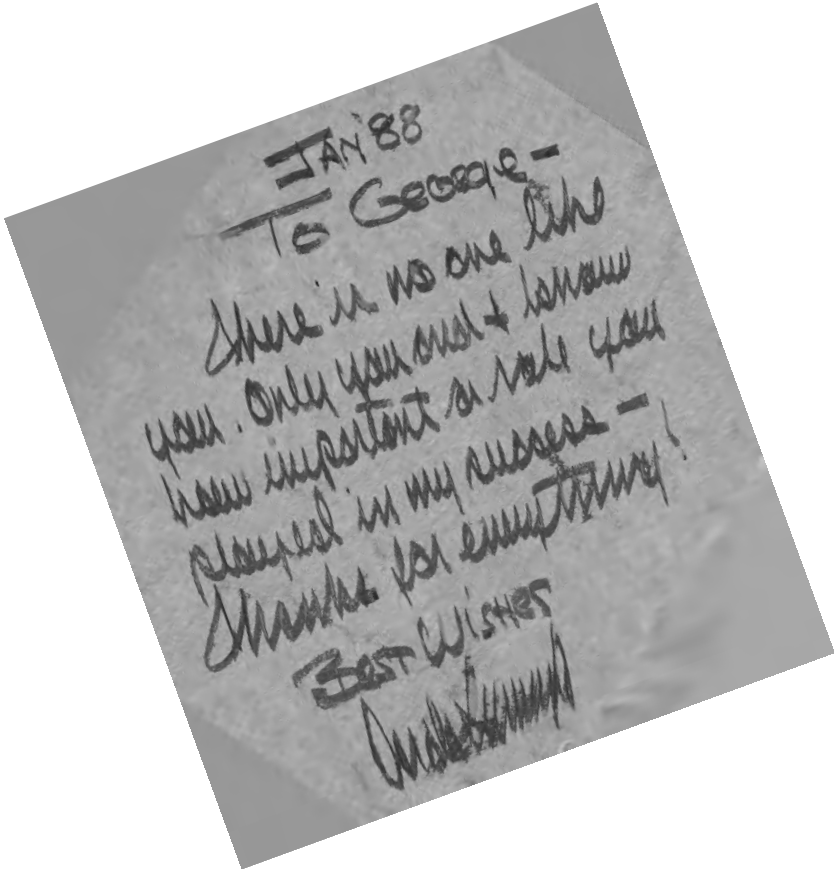 JAN '88
To GEORGE -
There is no one like
you. Only you and I know
how important a role you
played in my success -
Thanks for everything!
BEST WISHES